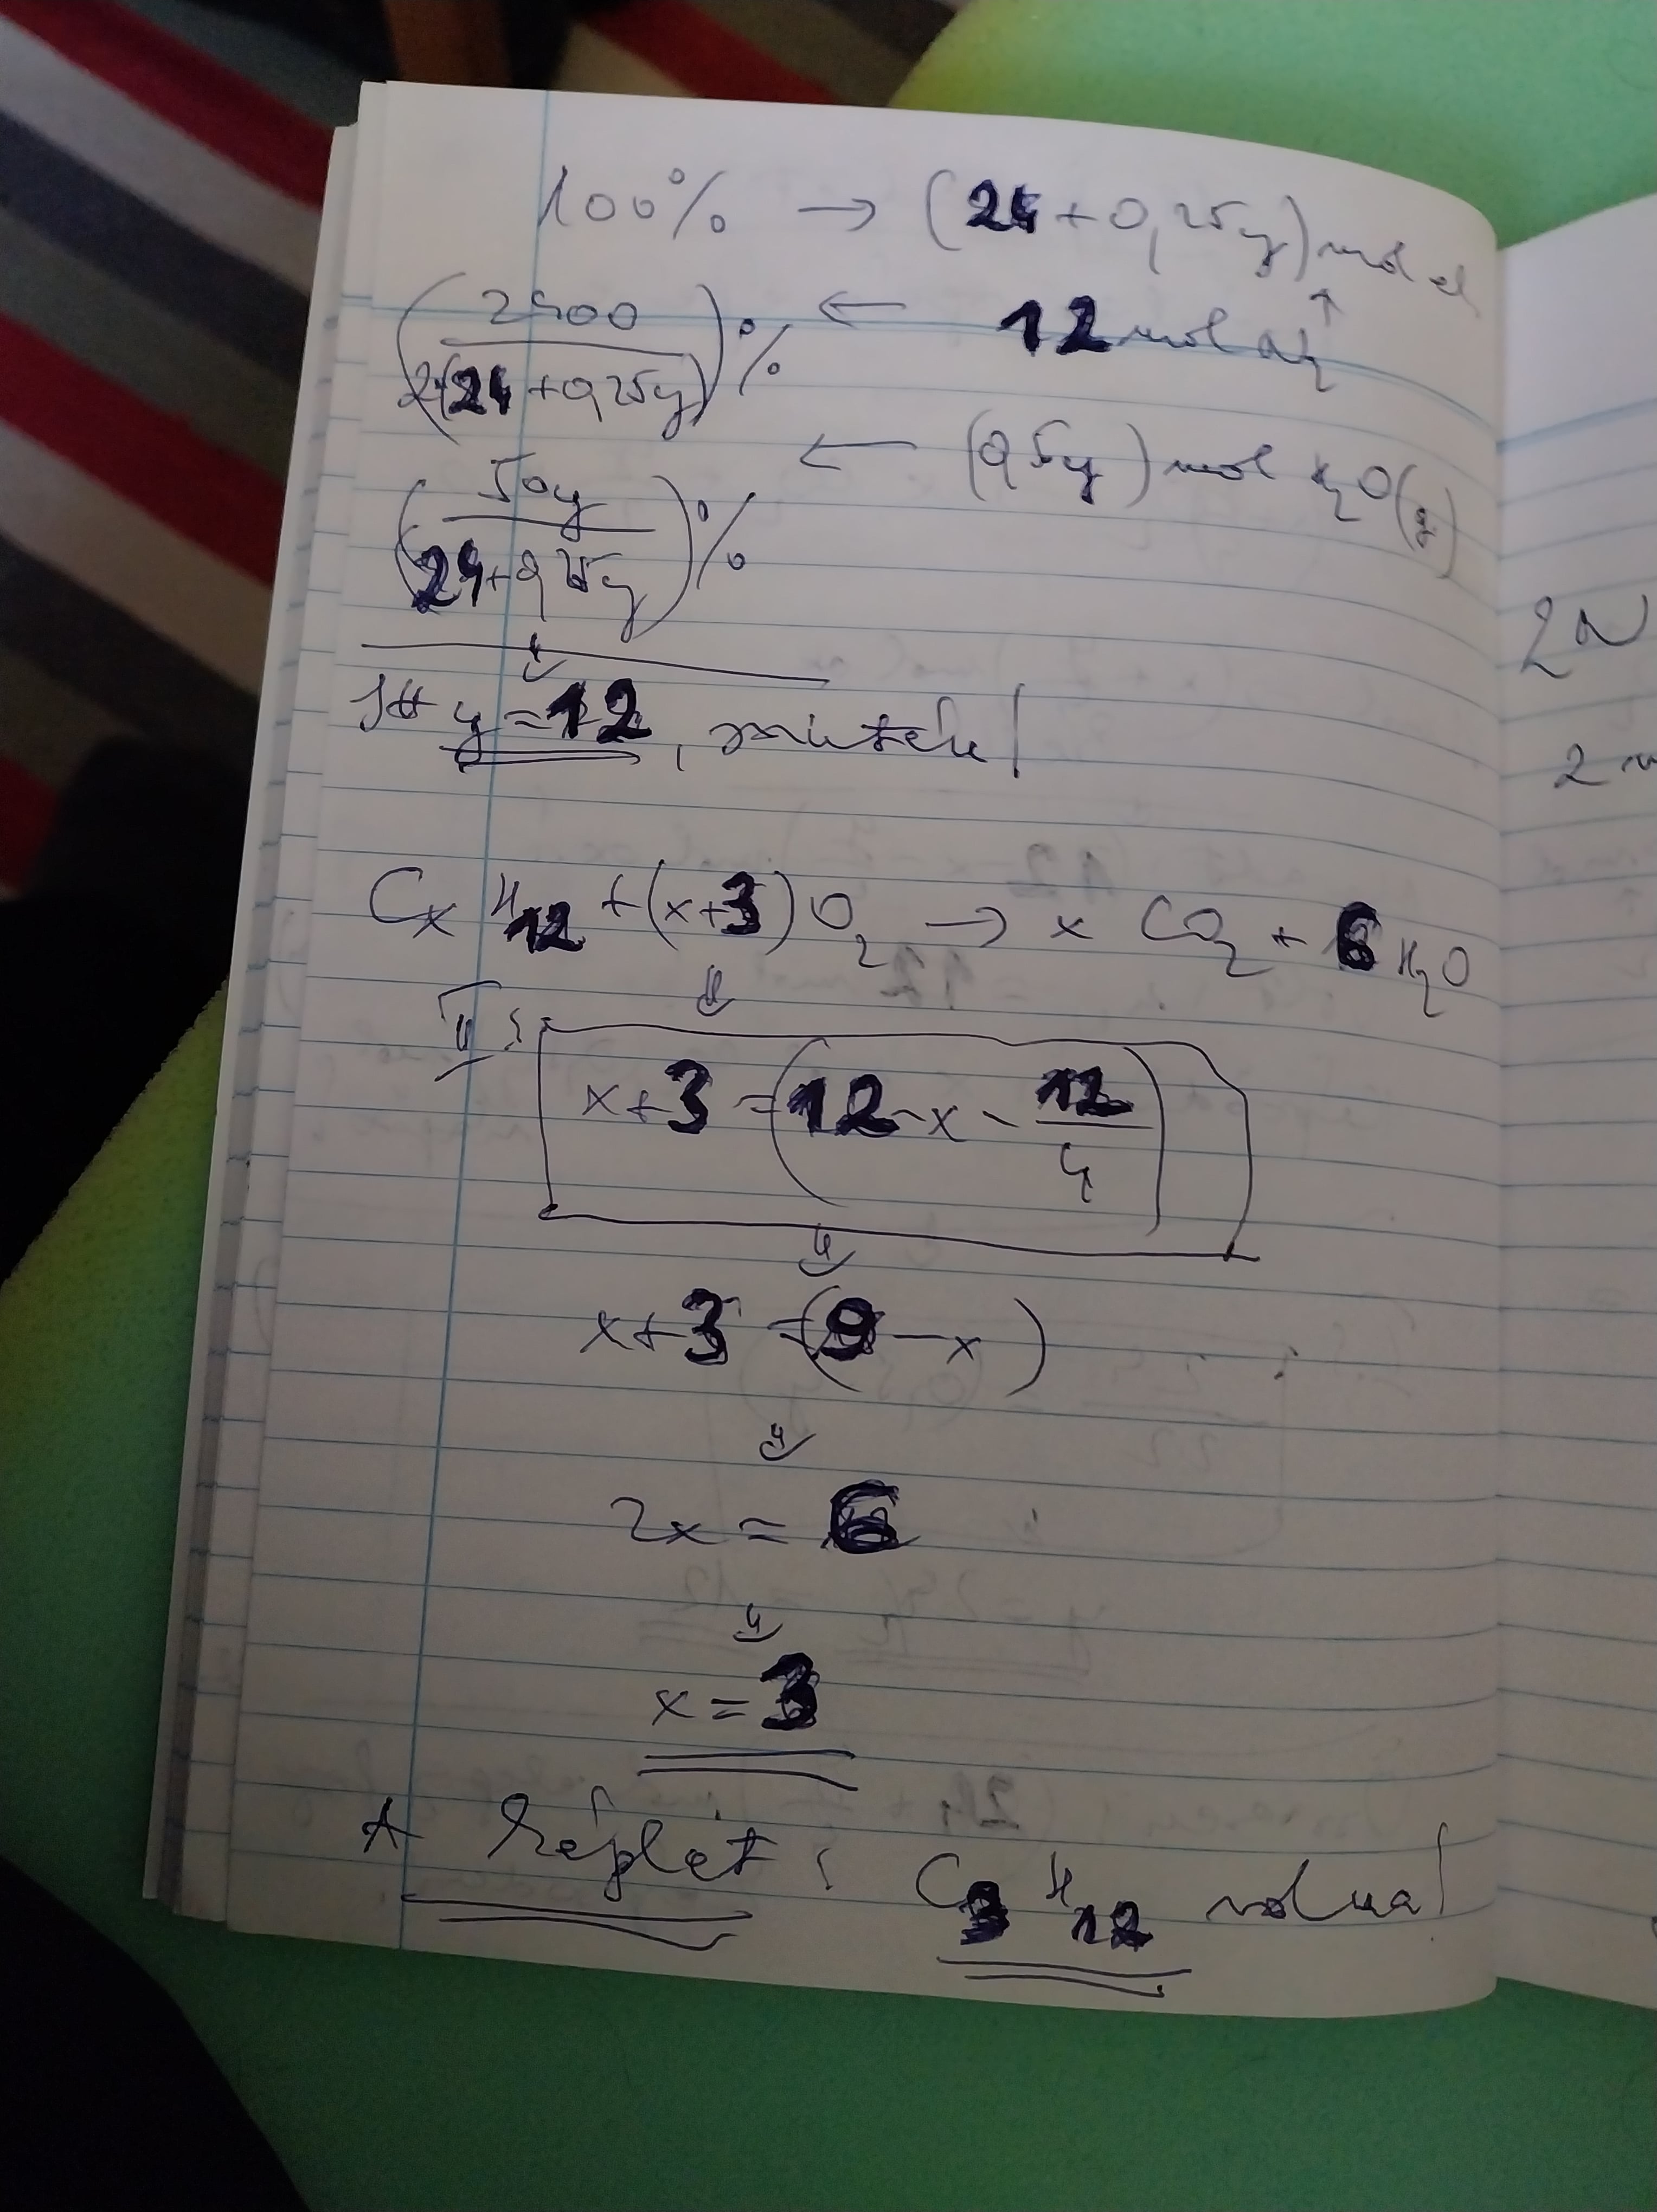 100% → (24 + 0,25y) mol
(2400 / 2(24 + 0,25y))% ← 12 mol N2
(50y / 24 + 0,25y)% ← (0,5y) mol H2O(g)
Itt y = 12,
CxH12 + (x+3)O2 → x CO2 + 6 H2O
x+3 = (12 - x - 12/4)
x+3 = (9 - x)
2x = 6
x = 3
A képlet: C3H12 volna!
2N
2